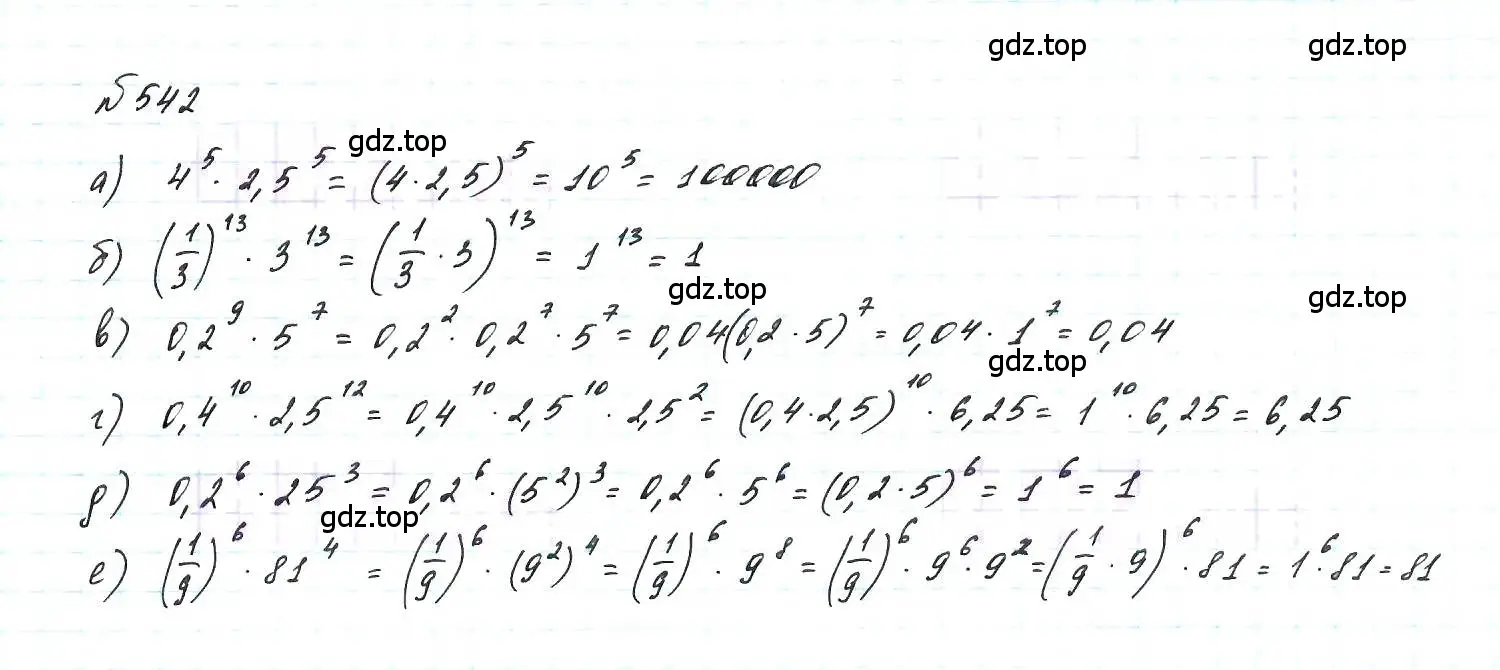 gdz.top gdz.top
№ 542
gdz.top
а) 4⁵ · 2,5⁵ = (4 · 2,5)⁵ = 10⁵ = 100000
б) (1/3)¹³ · 3¹³ = (1/3 · 3)¹³ = 1¹³ = 1
gdz.top gdz.top
в) 0,2⁹ · 5⁷ = 0,2² · 0,2⁷ · 5⁷ = 0,04(0,2 · 5)⁷ = 0,04 · 1⁷ = 0,04
gdz.top
г) 0,4¹⁰ · 2,5¹² = 0,4¹⁰ · 2,5¹⁰ · 2,5² = (0,4 · 2,5)¹⁰ · 6,25 = 1¹⁰ · 6,25 = 6,25
д) 0,2⁶ · 25³ = 0,2⁶ · (5²)³ = 0,2⁶ · 5⁶ = (0,2 · 5)⁶ = 1⁶ = 1
gdz.top
е) (1/9)⁶ · 81⁴ = (1/9)⁶ · (9²)⁴ = (1/9)⁶ · 9⁸ = (1/9)⁶ · 9⁶ · 9² = (1/9 · 9)⁶ · 81 = 1⁶ · 81 = 81